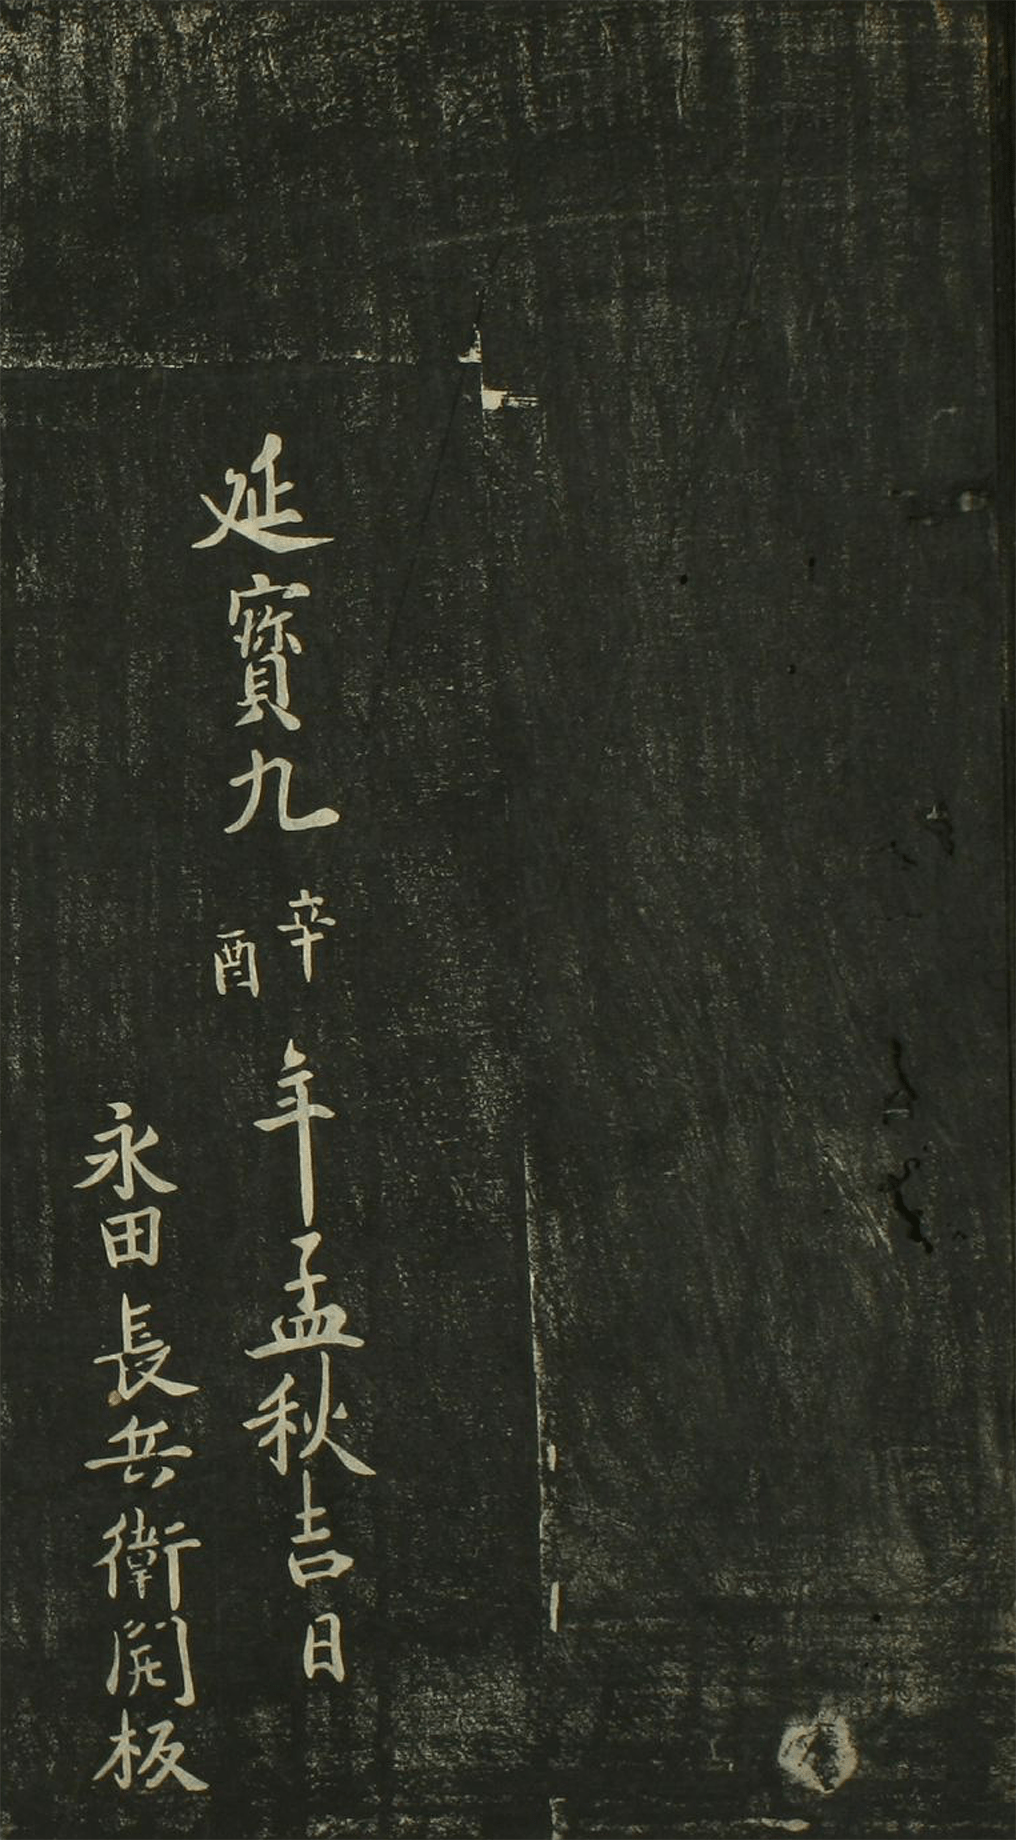 延寳九辛酉年孟秋吉日
永田長兵衛開板